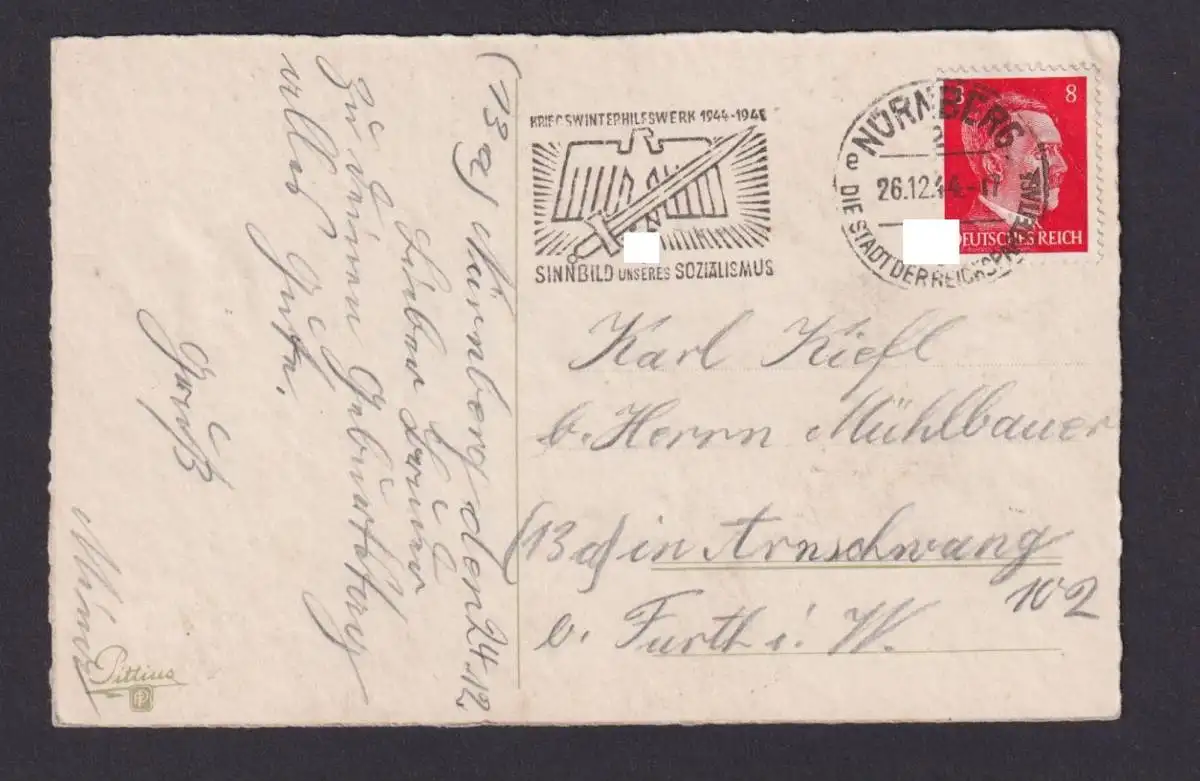 KRIEGSWINTERHILFSWERK 1944-1945
SINNBILD UNSERES SOZIALISMUS
NÜRNBERG
2
e
26.12.44.
DIE STADT DER REICHSPARTEITAGE
8 8
DEUTSCHES REICH
(13a) Nürnberg den 24.12
Lieber
Zu deinem Geburtstag
alles Gute.
Gruß
Karl Kiefl
b. Herrn Mühlbauer
(13a) in Arnschwang
102
b. Furth i. W.
Pittius